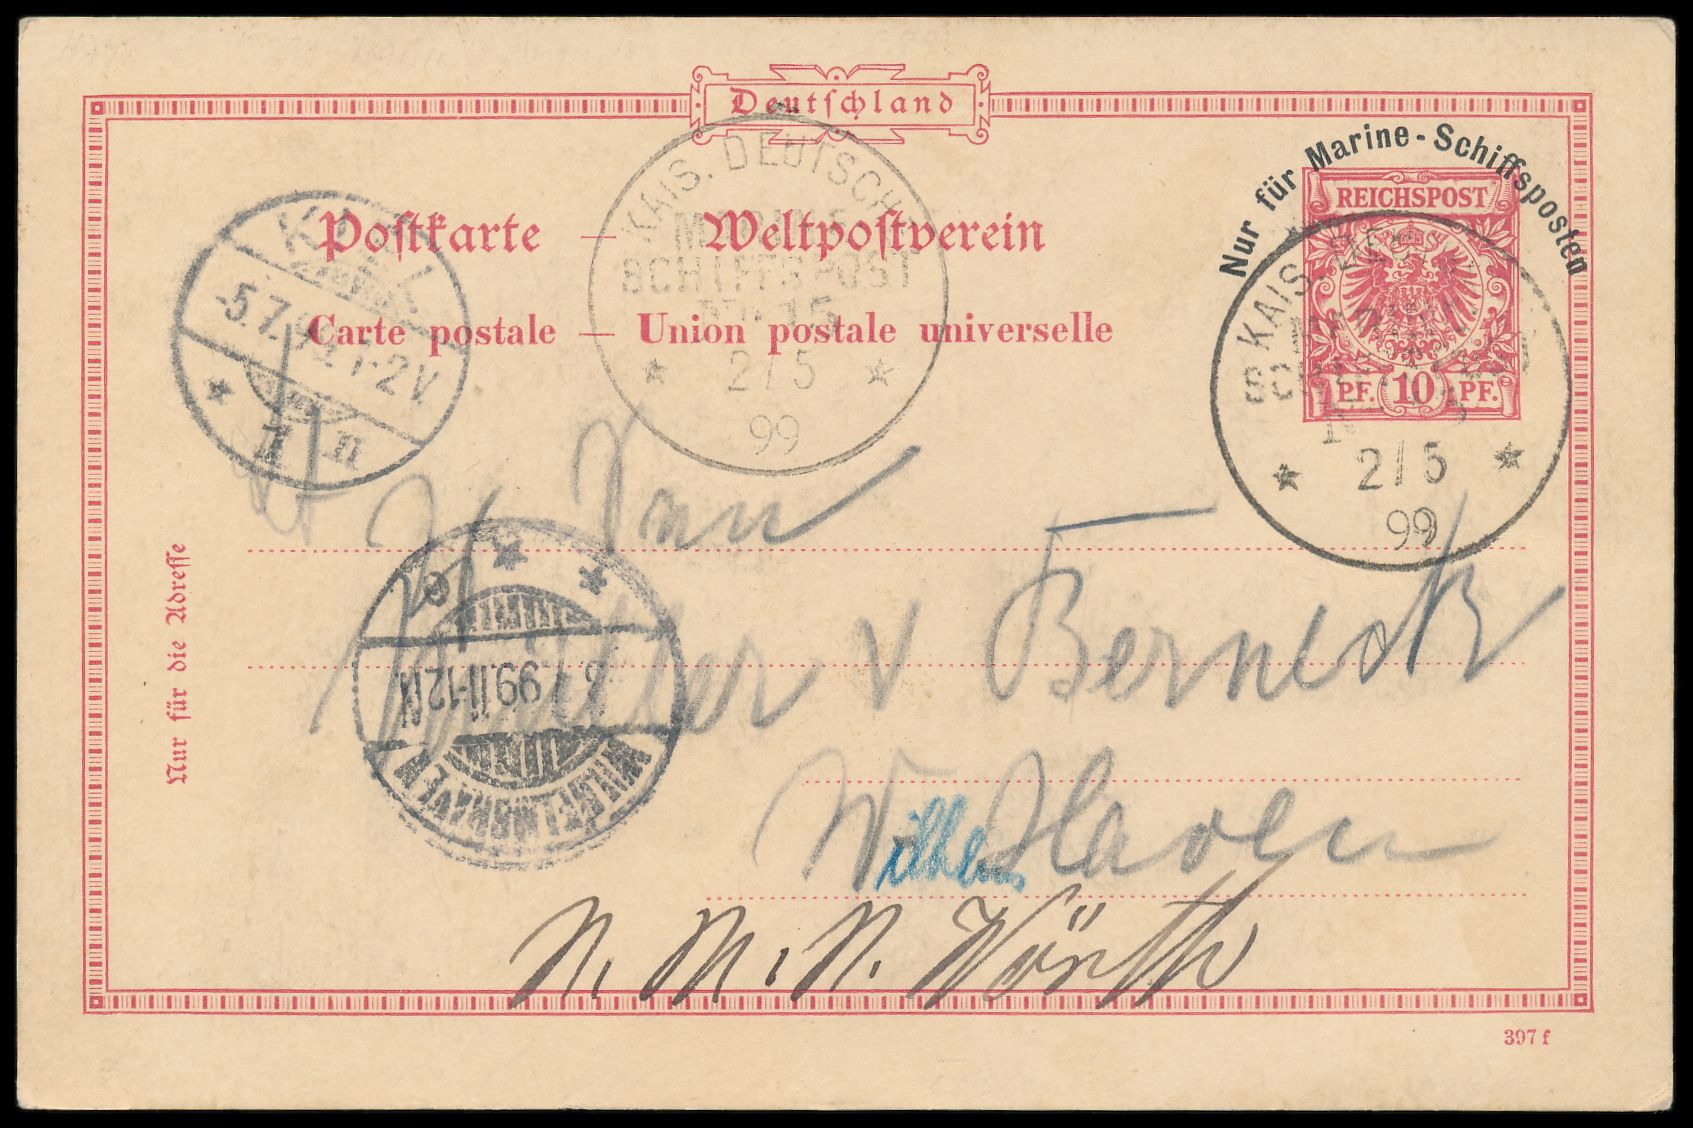 Deutschland
Nur für Marine-Schiffsposten
REICHSPOST
PF. 10 PF.
KAIS. DEUTSCHE
MARINE-
SCHIFFSPOST
No 15
* 2/5 *
99
KAIS. DEUTSCHE
* 2/5 *
99
Postkarte — Weltpostverein
Carte postale — Union postale universelle
KIEL
-5.7.99.1-2V.
* n
Nur für die Adresse
v Berneck
WILHELMSHAVEN
.7.99.11-12N
* *
Wilhelms Haven
S. M. S. Wörth
397 f